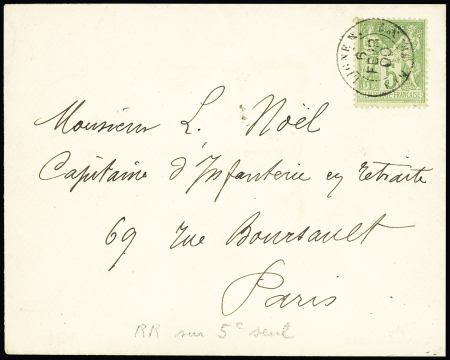 LIGNE N
6
FEVR
00
5
FRANÇAISE
Monsieur L. Noël
Capitaine d'Infanterie en retraite
69 rue Boursault
Paris
RR sur 5c seul